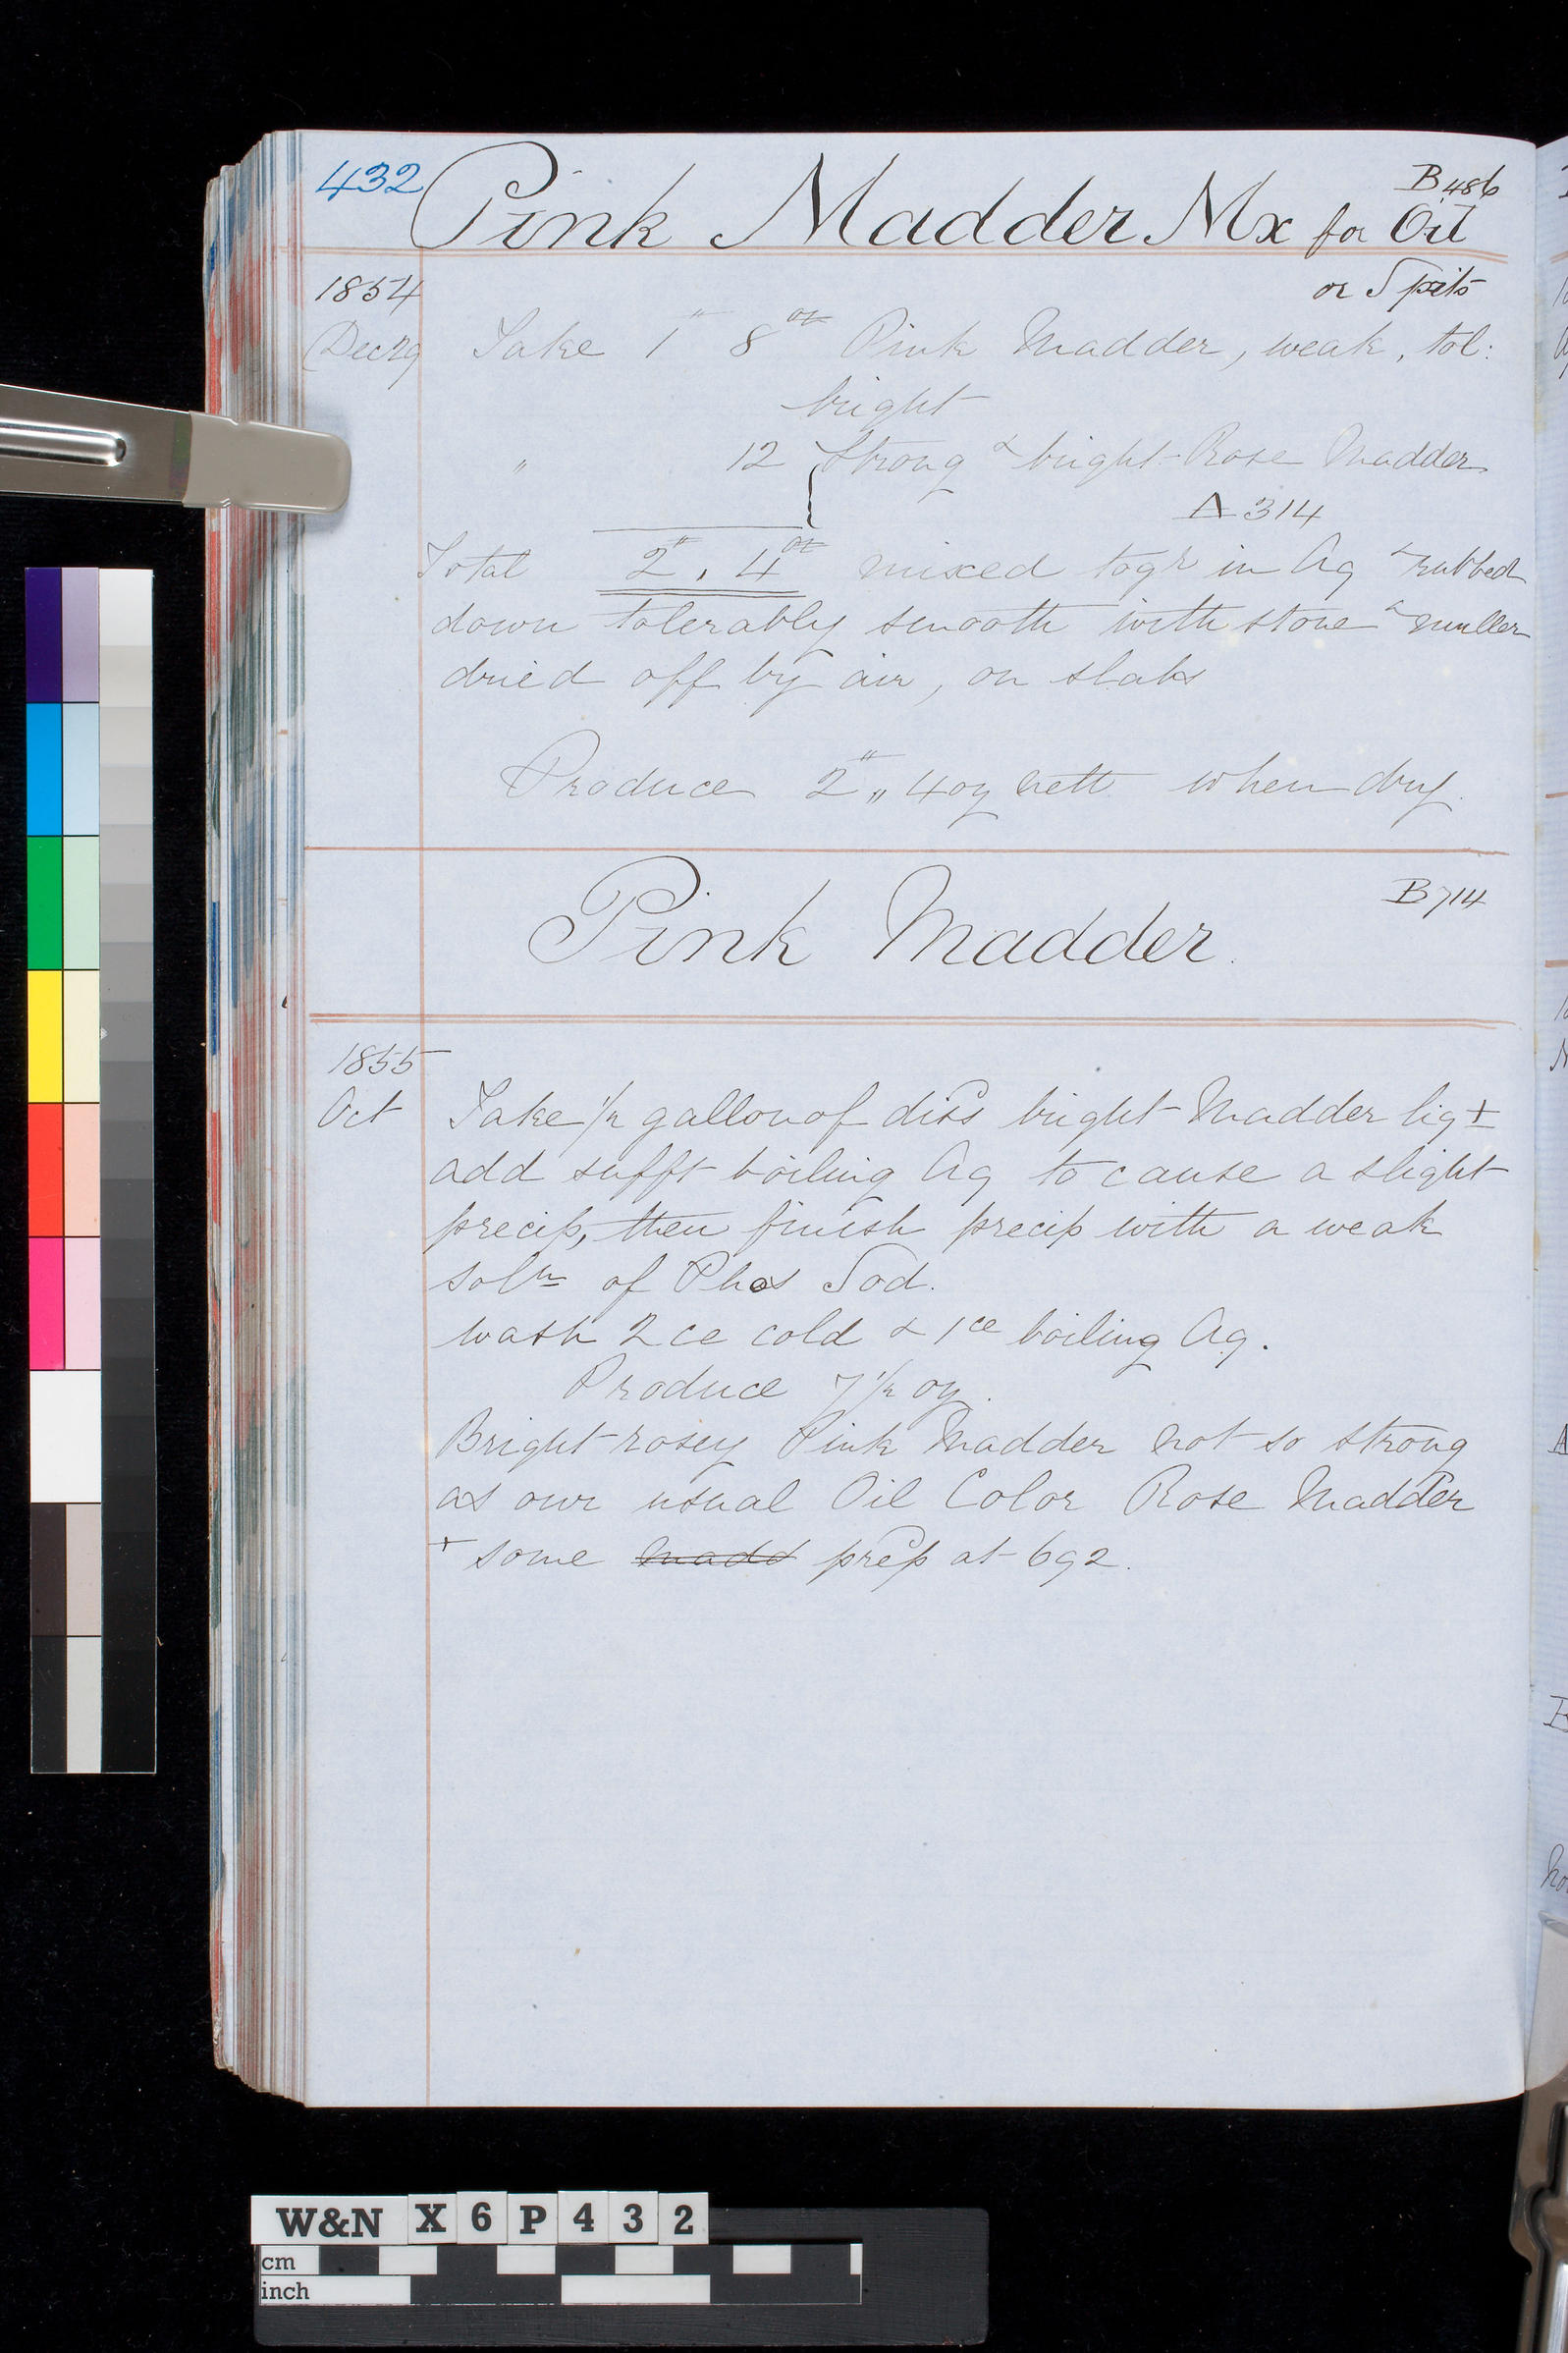 432
B 486
Pink Madder Mx for Oil
or Spits
1854
Dec 29 Take 1" 8 oz Pink Madder, weak, tol:
bright
" 12 Strong & bright Rose Madder
A 314
Total 2", 4 oz mixed togr in Aq & rubbed
down tolerably smooth with stone & muller
dried off by air, on slabs
Produce 2",, 4 oz nett when dry.
B 714
Pink Madder.
1855
Oct Take 1/2 gallon of diss bright Madder liq +
add sufft boiling Aq to cause a slight
precip, then finish precip with a weak
soln of Phos Sod.
wash 2ce cold & 1ce boiling Aq.
Produce 7 1/2 oz.
Bright rosey Pink Madder not so strong
as our usual Oil Color Rose Madder
+ some madd prep at 692.
W&N X 6 P 4 3 2
cm
inch